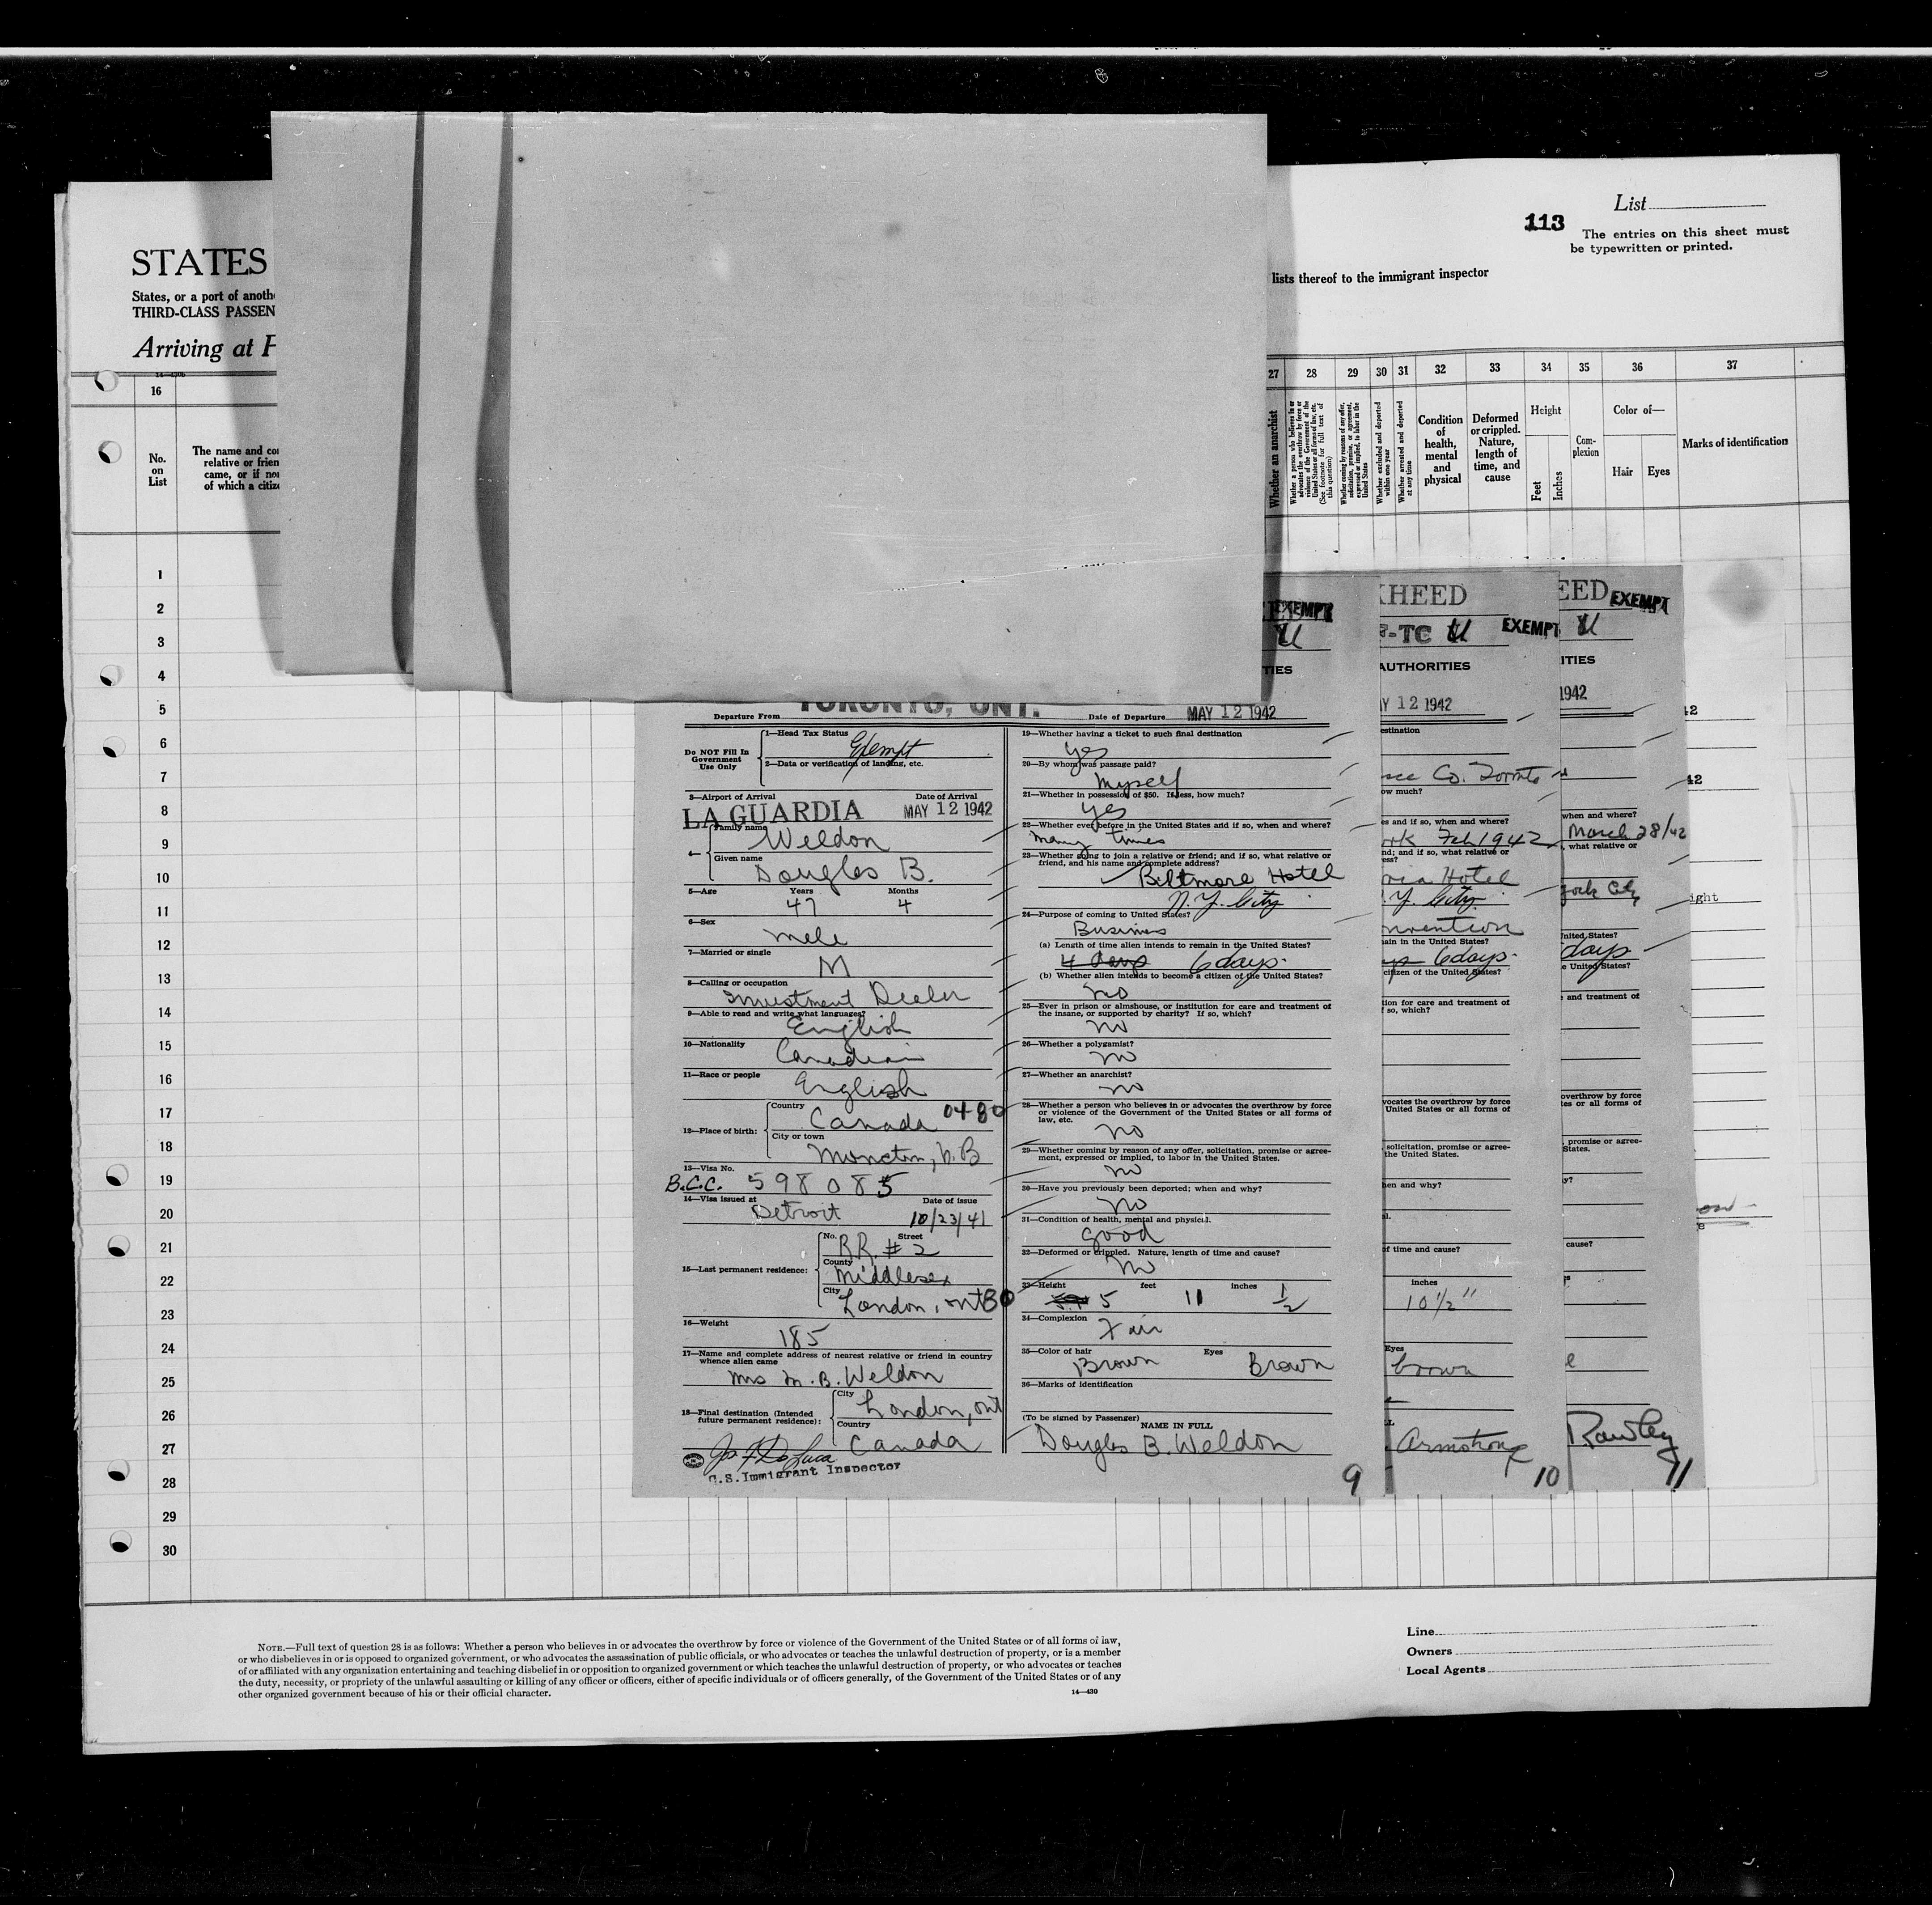 113
List
The entries on this sheet must
be typewritten or printed.
STATES
States, or a port of anoth
THIRD-CLASS PASSEN
lists thereof to the immigrant inspector
Arriving at
16
27 28 29 30 31 32 33 34 35 36 37
No.
on
List
The name and
relative or frien
came, or if
of which a citiz
Whether an anarchist
Whether a person who believes in or
advocates the overthrow by force or
violence of the Government of the
United States or all forms of law, etc.
(See footnote for full text of
this question)
Whether coming by reasons of any offer,
solicitation, promise, or agreement,
expressed or implied, to labor in the
United States
Whether excluded and deported
within one year
Whether arrested and deported
at any time
Condition
of
health,
mental
and
physical
Deformed
or crippled.
Nature,
length of
time, and
cause
Height
Feet
Inches
Com-
plexion
Color of—
Hair
Eyes
Marks of identification
1
2
3
4
5
6
7
8
9
10
11
12
13
14
15
16
17
18
19
20
21
22
23
24
25
26
27
28
29
30
EXEMPT
TIES
TORONTO, ONT.
Departure From
Date of Departure MAY 12 1942
Do NOT Fill In
Government
Use Only
1—Head Tax Status
Exempt
2—Data or verification of landing, etc.
3—Airport of Arrival
Date of Arrival
LA GUARDIA MAY 12 1942
4—
Family name
Weldon
Given name
Douglas B.
5—Age Years Months
47 4
6—Sex
Male
7—Married or single
M
8—Calling or occupation
Investment Dealer
9—Able to read and write what languages?
English
10—Nationality
Canadian
11—Race or people
English
12—Place of birth:
Country
Canada 04-80
City or town
Moncton, N.B
13—Visa No.
B.C.C. 598085
14—Visa issued at Date of issue
Detroit 10/23/41
15—Last permanent residence:
No. Street
RR. # 2
County
Middlesex
City
London, Ont 80
16—Weight
185
17—Name and complete address of nearest relative or friend in country
whence alien came
Mrs M. B. Weldon
18—Final destination (Intended
future permanent residence):
City
London, Ont
Country
Canada
U.S. Immigrant Inspector
19—Whether having a ticket to such final destination
Yes
20—By whom was passage paid?
Myself
21—Whether in possession of $50. If less, how much?
Yes
22—Whether ever before in the United States and if so, when and where?
Many times
23—Whether going to join a relative or friend; and if so, what relative or
friend, and his name and complete address?
Biltmore Hotel
N. Y. City
24—Purpose of coming to United States?
Business
(a) Length of time alien intends to remain in the United States?
4 days 6 days.
(b) Whether alien intends to become a citizen of the United States?
no
25—Ever in prison or almshouse, or institution for care and treatment of
the insane, or supported by charity? If so, which?
no
26—Whether a polygamist?
no
27—Whether an anarchist?
no
28—Whether a person who believes in or advocates the overthrow by force
or violence of the Government of the United States or all forms of
law, etc.
no
29—Whether coming by reason of any offer, solicitation, promise or agree-
ment, expressed or implied, to labor in the United States.
no
30—Have you previously been deported; when and why?
no
31—Condition of health, mental and physical.
good
32—Deformed or crippled. Nature, length of time and cause?
no
33—Height feet inches
5 11 1/2
34—Complexion
Fair
35—Color of hair Eyes
Brown Brown
36—Marks of identification
(To be signed by Passenger)
NAME IN FULL
Douglas B. Weldon
9
KHEED
-TC
EXEMPT
AUTHORITIES
Y 12 1942
estination
Co. Toronto
ow much?
es and if so, when and where?
ork Feb 1942
nd; and if so, what relative or
ess?
Hotel
. Y. City
nvention
ain in the United States?
6 days.
citizen of the United States?
tion for care and treatment of
so, which?
vocates the overthrow by force
United States or all forms of
solicitation, promise or agree-
the United States.
en and why?
of time and cause?
inches
10 1/2"
Eyes
brown
Armstrong
10
EED
EXEMPT
ITIES
1942
when and where?
March 28/42
, what relative or
York City
United States?
days
e United States?
and treatment of
overthrow by force
tes or all forms of
, promise or agree-
States.
y?
cause?
Rawley
11
42
42
ight
NOTE.—Full text of question 28 is as follows: Whether a person who believes in or advocates the overthrow by force or violence of the Government of the United States or of all forms of law,
or who disbelieves in or is opposed to organized government, or who advocates the assassination of public officials, or who advocates or teaches the unlawful destruction of property, or is a member
of or affiliated with any organization entertaining and teaching disbelief in or opposition to organized government or which teaches the unlawful destruction of property, or who advocates or teaches
the duty, necessity, or propriety of the unlawful assaulting or killing of any officer or officers, either of specific individuals or of officers generally, of the Government of the United States or of any
other organized government because of his or their official character.
14—430
Line
Owners
Local Agents